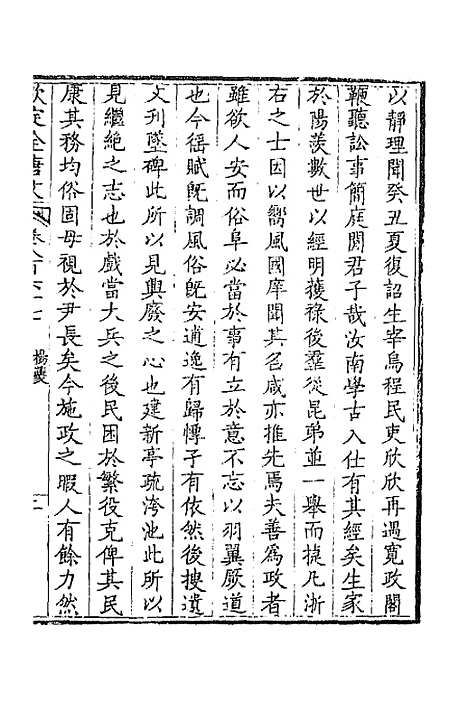 以靜理聞癸丑夏復詔生宰烏程民吏欣欣再遇寬政閣
鞭聽訟事簡庭閴君子哉汝南學古入仕有其經矣生家
於陽羨數世以經明獲祿後羣從昆弟並一舉而捷凡浙
右之士因以嚮風國庠聞其名咸亦推先焉夫善爲政者
雖欲人安而俗阜必當於事有立於意不忘以羽翼厥道
也今徭賦旣調風俗旣安逋逸有歸惸子有依然後搜遺
文刊墜碑此所以見興廢之心也建新亭疏洿池此所以
見繼絶之志也於戲當大兵之後民困於繁役克俾其民
康其務均俗固毋視於尹長矣今施政之暇人有餘力然
欽定全唐文 楊夔